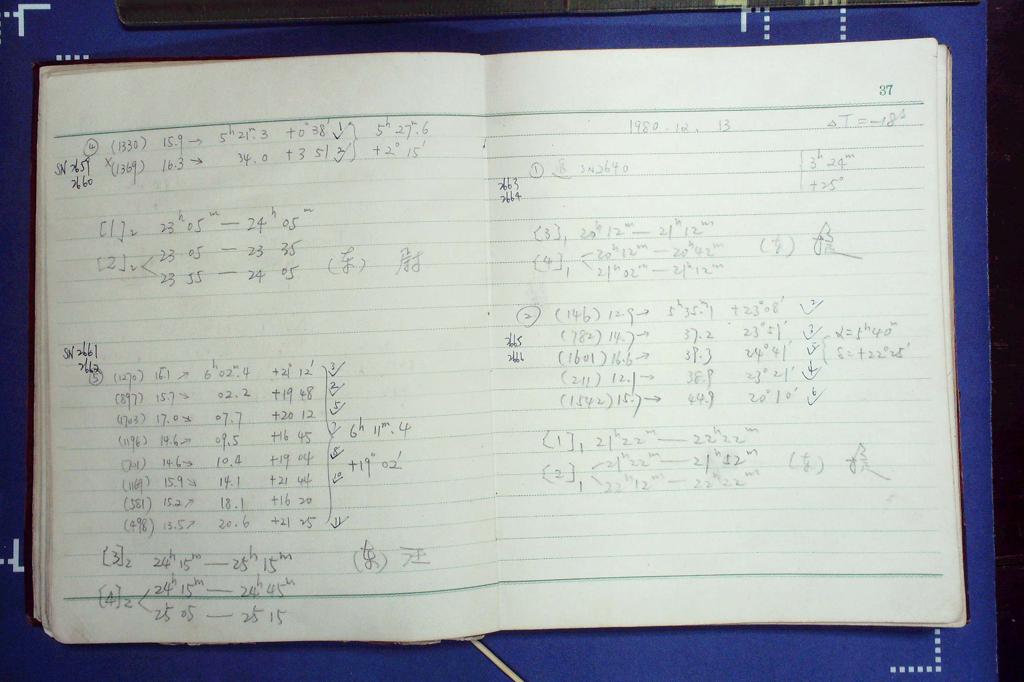 ④ (1330) 15.9 → 5ʰ21ᵐ.3 +0°38′ 1 5ʰ27ᵐ.6
SN2659 ×(1369) 16.3 → 34.0 +3 51 3 +2° 15′
2660
[1]₂ 23ʰ05ᵐ — 24ʰ05ᵐ
[2]₂ 23 05 — 23 35
23 55 — 24 05 (东)
SN2661
2662
⑤ (1270) 16.1 → 6ʰ02ᵐ.4 +21°12′ 3
(897) 15.7 → 02.2 +19 48 2
(1703) 17.0 → 07.7 +20 12 5
(1196) 14.6 → 09.5 +16 45 6ʰ11ᵐ.4
(701) 14.6 → 10.4 +19 04 +19°02′
(1169) 15.9 → 14.1 +21 44 10
(581) 15.2 → 18.1 +16 20
(498) 13.5 → 20.6 +21 25 11
[3]₂ 24ʰ15ᵐ — 25ʰ15ᵐ (东) 汪
[4]₂ 24ʰ15ᵐ — 24ʰ45ᵐ
25 05 — 25 15
37
1980.12.13 ΔT=-18ˢ
① SN2640 3ʰ24ᵐ
2663 +25°
2664
[3]₁ 20ʰ12ᵐ — 21ʰ12ᵐ
[4]₁ 20ʰ12ᵐ — 20ʰ42ᵐ
21ʰ02ᵐ — 21ʰ12ᵐ
② (146) 12.9 → 5ʰ35ᵐ.1 +23°08′ 2
2665 (782) 14.7 → 37.2 23°51′ 3 α=5ʰ40ᵐ
2666 (1601) 16.6 → 39.3 24°41′ 5 δ=+22°25′
(211) 12.1 → 38.9 23°21′ 4
(1542) 15.7 → 44.9 20°10′ 6
[1]₁ 21ʰ22ᵐ — 22ʰ22ᵐ
[2]₁ 21ʰ22ᵐ — 21ʰ52ᵐ
22ʰ12ᵐ — 22ʰ22ᵐ